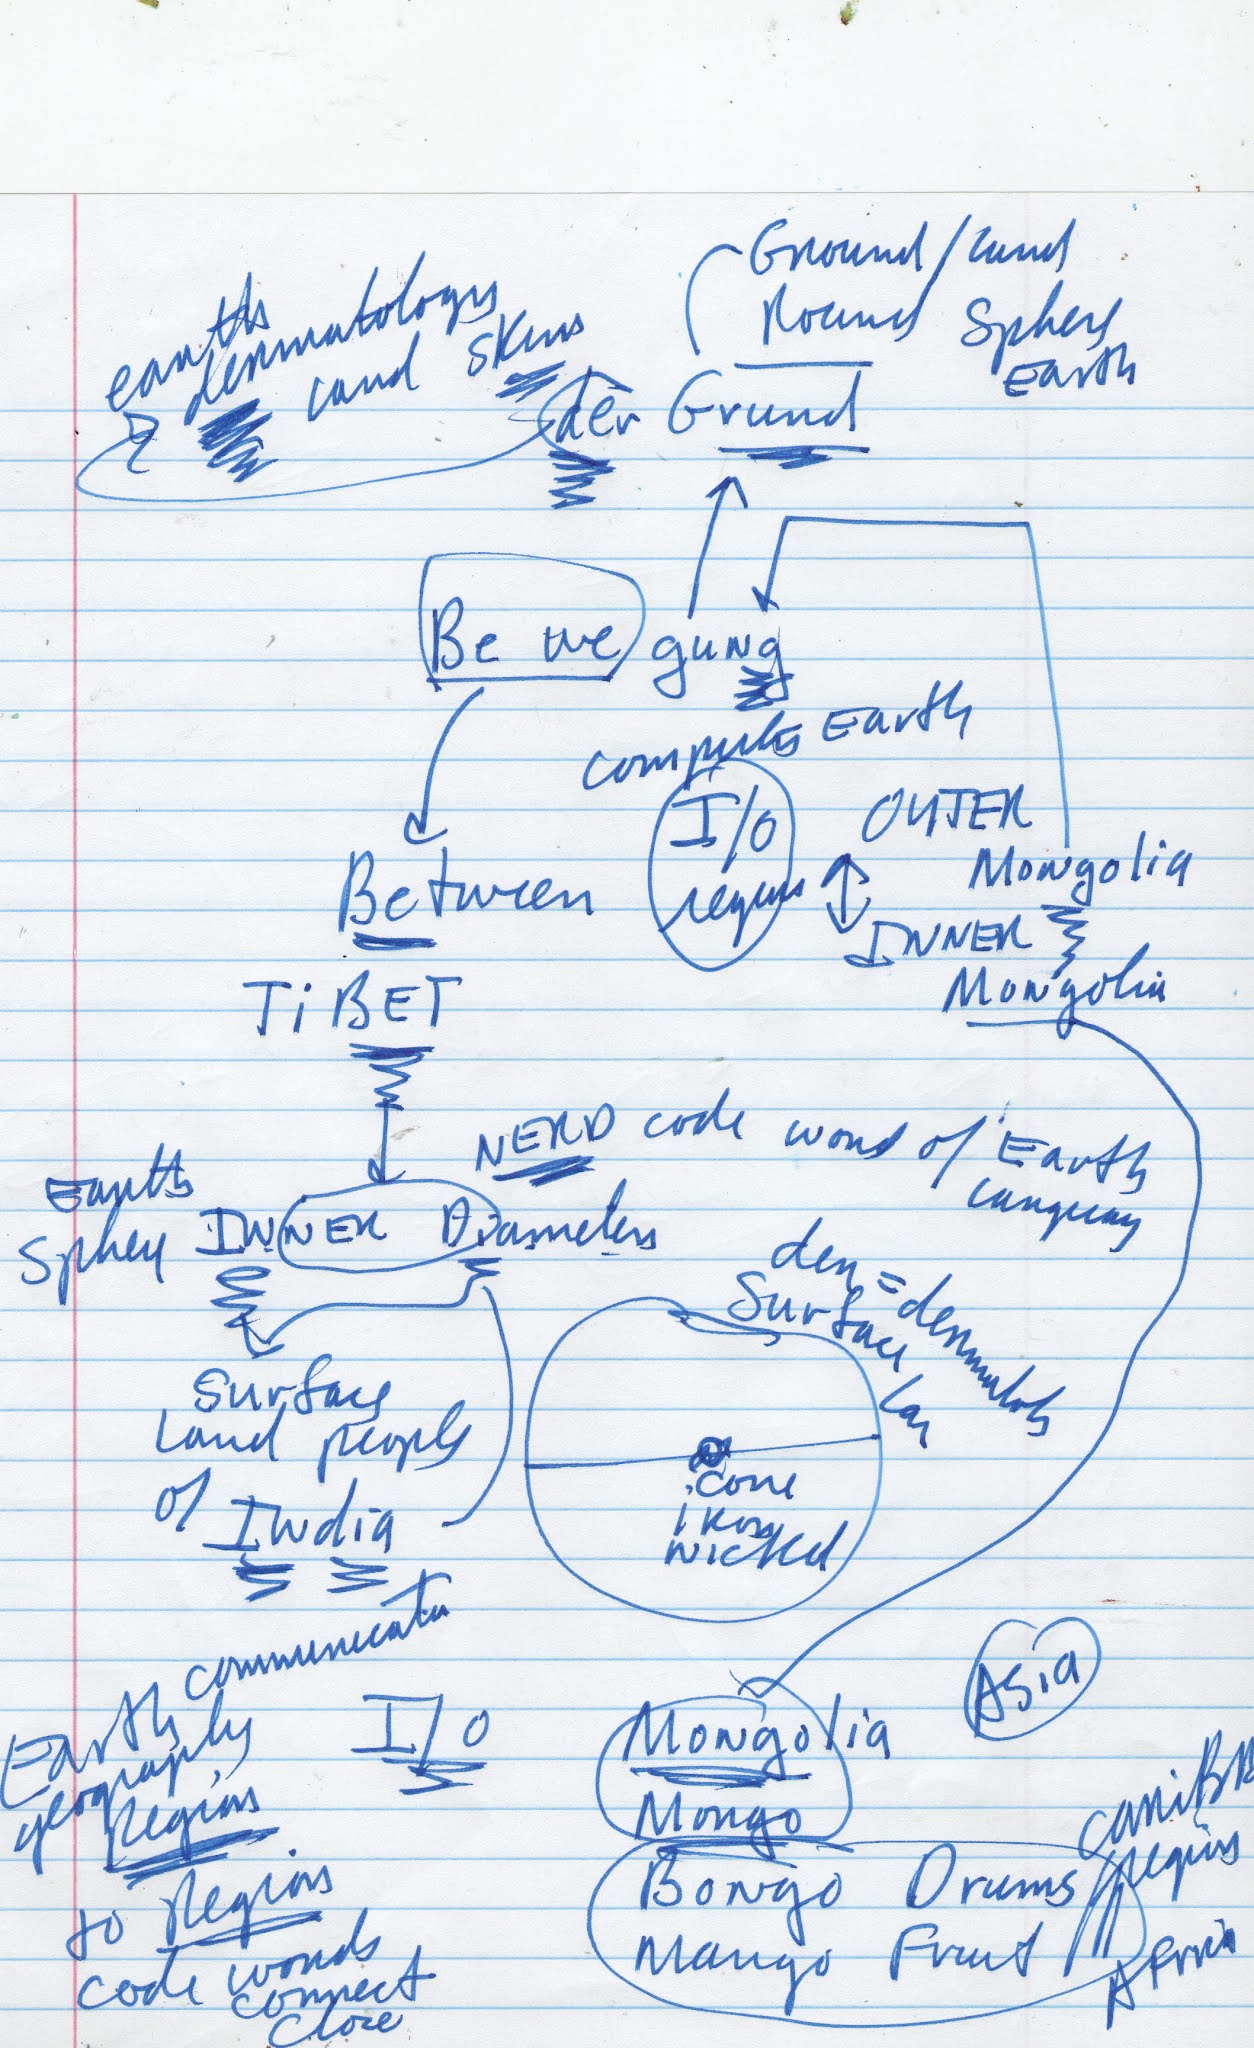 Ground / Land
Round Sphere
Earth
earths
dermatology
Land skins
der Grund
Be we gung
computes Earth
I/O
regions
OUTER
Mongolia
INNER
Mongolia
Between
TiBET
NERD code word of Earth
Languag
Earth
Sphere INNER Diameters
der = dermatolo
Surface
Lay
Surface
Land people
of India
core
iron
nickel
communicate
Earth
geography
Regions
to Regions
code words
connect
close
I/O
Asia
Mongolia
Mongo
Bongo Drums
Mango Fruit
regions
Africa